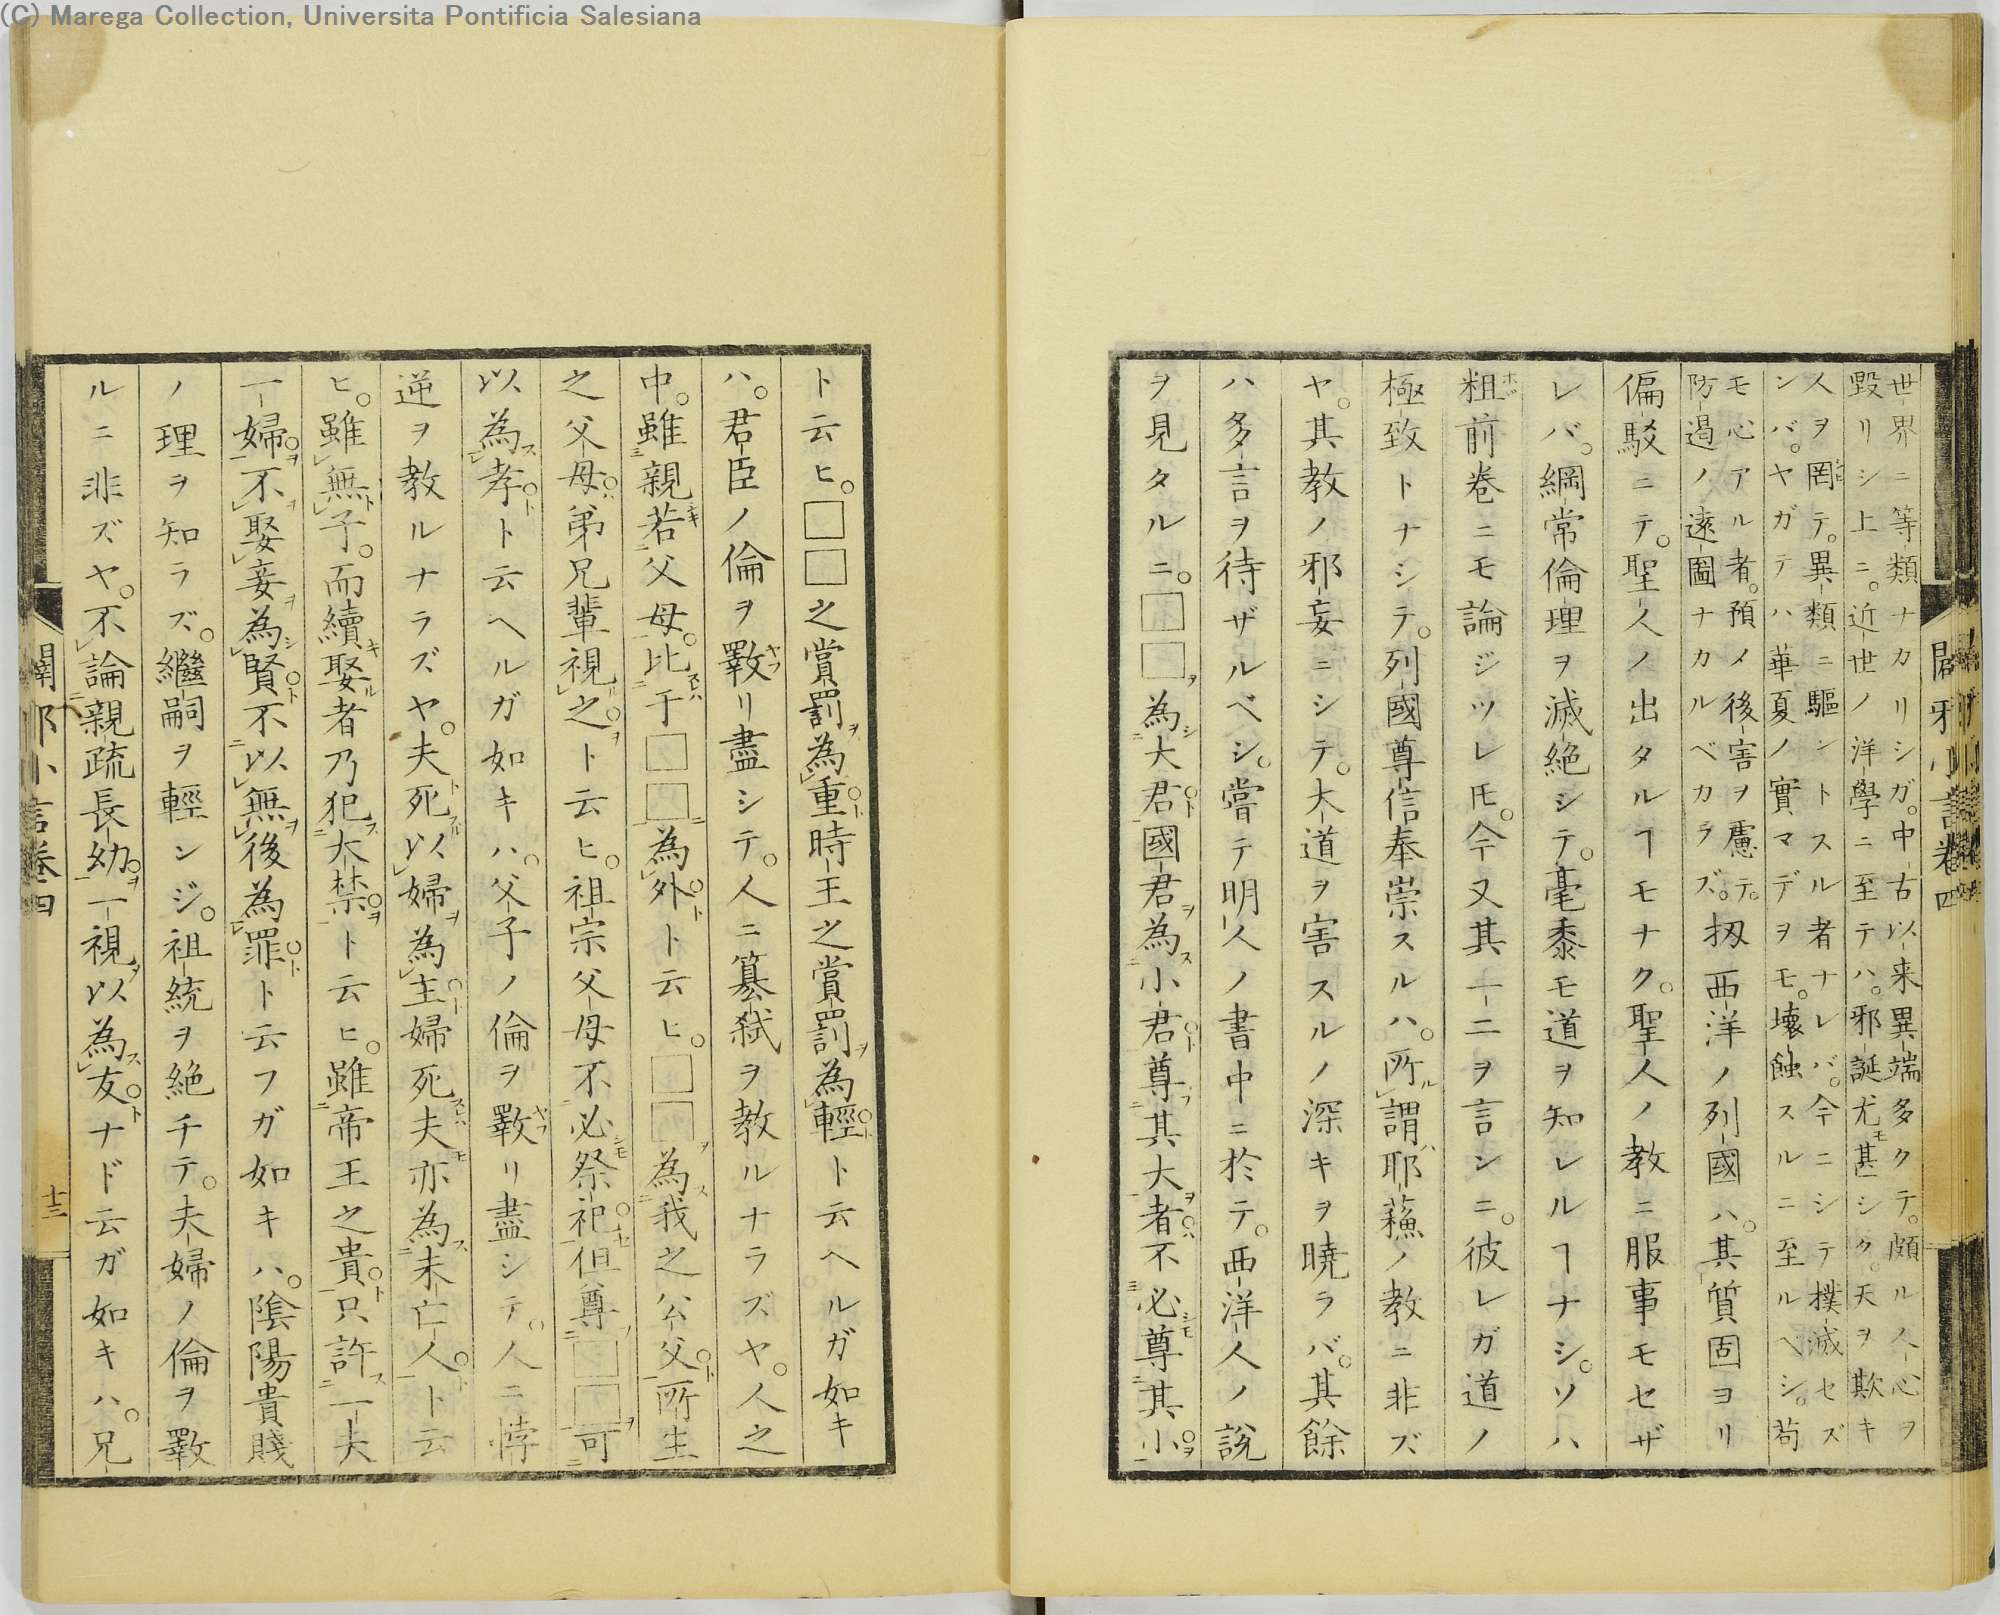 (C) Marega Collection, Universita Pontificia Salesiana
世界ニ等類ナカリシガ。中古以来異端多クテ。頗ル人心ヲ
毀リシ上ニ。近世ノ洋學ニ至テハ。邪誕尤モ甚シク。天ヲ欺キ
人ヲ罔テ。異類ニ驅ントスル者ナレバ。今ニシテ撲滅セズ
ンバ。ヤガテハ華夏ノ實マデヲモ。壊蝕スルニ至ルヘシ。苟
モ心アル者。預メ後害ヲ慮テ。
防遏ノ遠圖ナカルベカラズ。扨西洋ノ列國ハ。其質固ヨリ
偏駁ニテ。聖人ノ出タルヿモナク。聖人ノ教ニ服事モセザ
レバ。綱常倫理ヲ滅絶シテ。毫黍モ道ヲ知レルヿナシ。ソハ
粗前卷ニモ論ジツレ𪜈。今又其一二ヲ言ンニ。彼レガ道ノ
極致トナシテ。列國尊信奉崇スルハ。所謂耶蘓ノ教ニ非ズ
ヤ。其教ノ邪妄ニシテ。大道ヲ害スルノ深キヲ曉ラバ。其餘
ハ多言ヲ待ザルベシ。嘗テ明人ノ書中ニ於テ。西洋人ノ説
ヲ見タルニ。□□ヲ為シ大君ト國君ヲ為ス小君ト尊フ其大者ヲハ不必シモ尊其小ヲ
闢邪小言卷四
ト云ヒ。□□之賞罰ヲ為重ト時王之賞罰ヲ為輕ト云ヘルガ如キ
ハ。君臣ノ倫ヲ斁リ盡シテ。人ニ簒弑ヲ教ルナラズヤ。人之
中。雖親若キ父母。比スレハ于□□為外ト云ヒ。□□ヲ為ス我之公父ト所生
之父母ハ弟兄輩視ル之ヲト云ヒ。祖宗父母不必シモ祭祀セ但尊フ□□ヲ可
以為ス孝トト云ヘルガ如キハ。父子ノ倫ヲ斁リ盡シテ。人ニ悖
逆ヲ教ルナラズヤ。夫死以婦ヲ為主ト婦死スレハ夫亦モ為ス未亡人トト云
ヒ。雖無ト子。而續キ娶ル者乃犯ス大禁ヲト云ヒ。雖帝王之貴ト只許ス一夫
一婦ヲ不娶妾ヲ為シ賢ト不以無ヲ後為罪トト云フガ如キハ。陰陽貴賤
ノ理ヲ知ラズ。繼嗣ヲ輕ンジ。祖統ヲ絶チテ。夫婦ノ倫ヲ斁
ルニ非ズヤ。不論親疏長幼ヲ一視ヲ以為ス友トナド云ガ如キハ。兄
闢邪小言卷四
十三